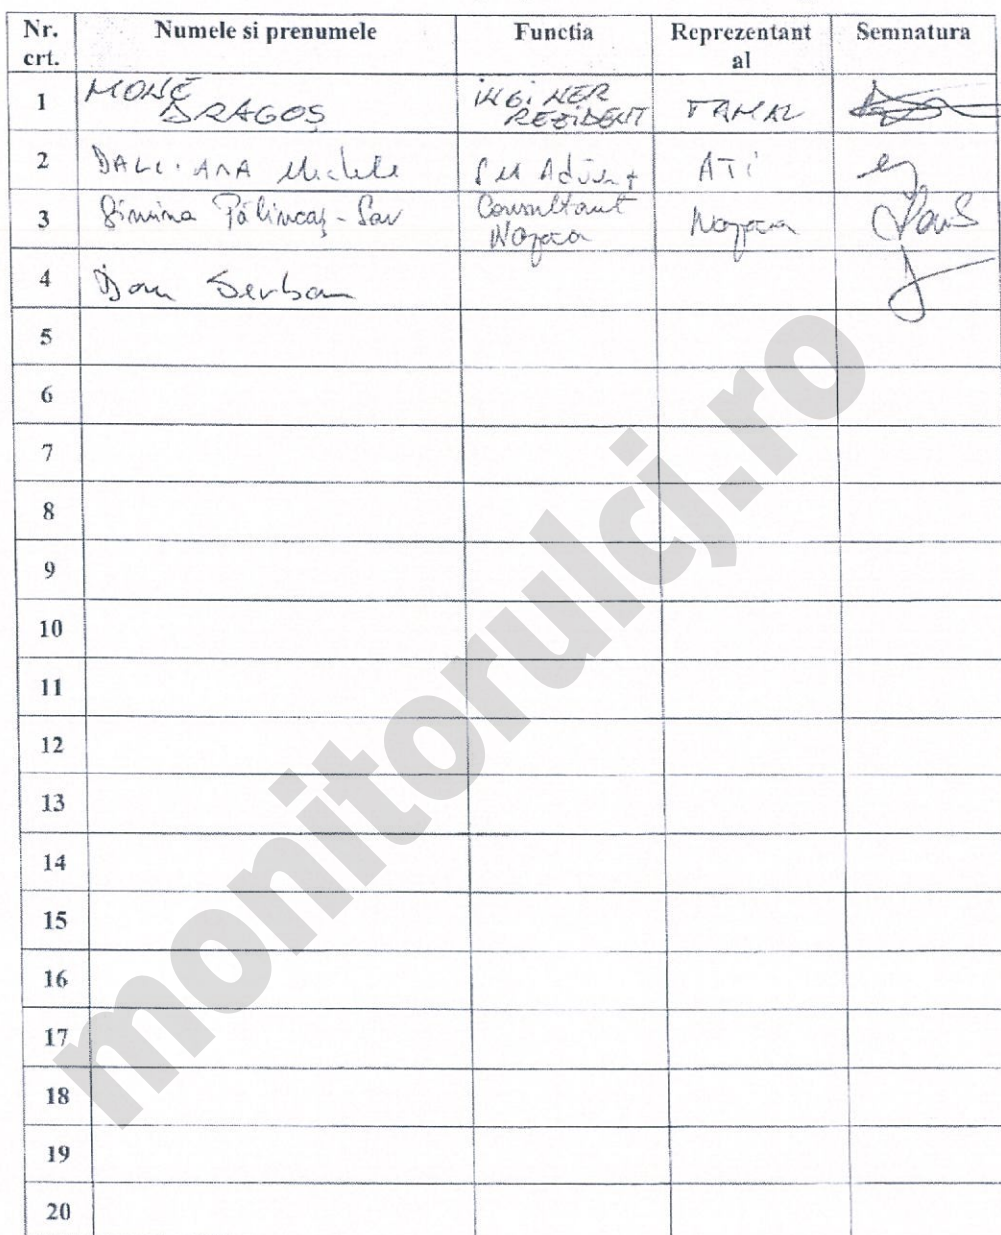 Nr. crt. Numele si prenumele Functia Reprezentant al Semnatura
1 MONE DRAGOȘ INGINER REZIDENT
2 Michele ATI
3 Simina Pălincaș - Sav Consultant
4 Dan Serban
5
6
7
8
9
10
11
12
13
14
15
16
17
18
19
20
monitorulcj.ro